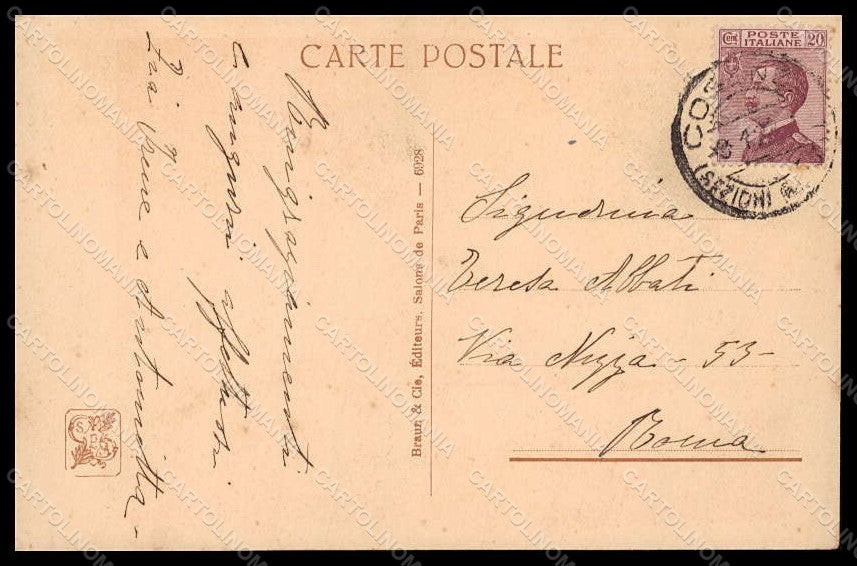 CARTE POSTALE
Cent POSTE ITALIANE 20
Ringraziamenti
e auguri affettuosi
Zia Irene e Antonietta -
Braun & Cie, Éditeurs. Salons de Paris — 6928
Signorina
Teresa Abbati
Via Nizza - 53 -
Roma
CARTOLINOMANIA